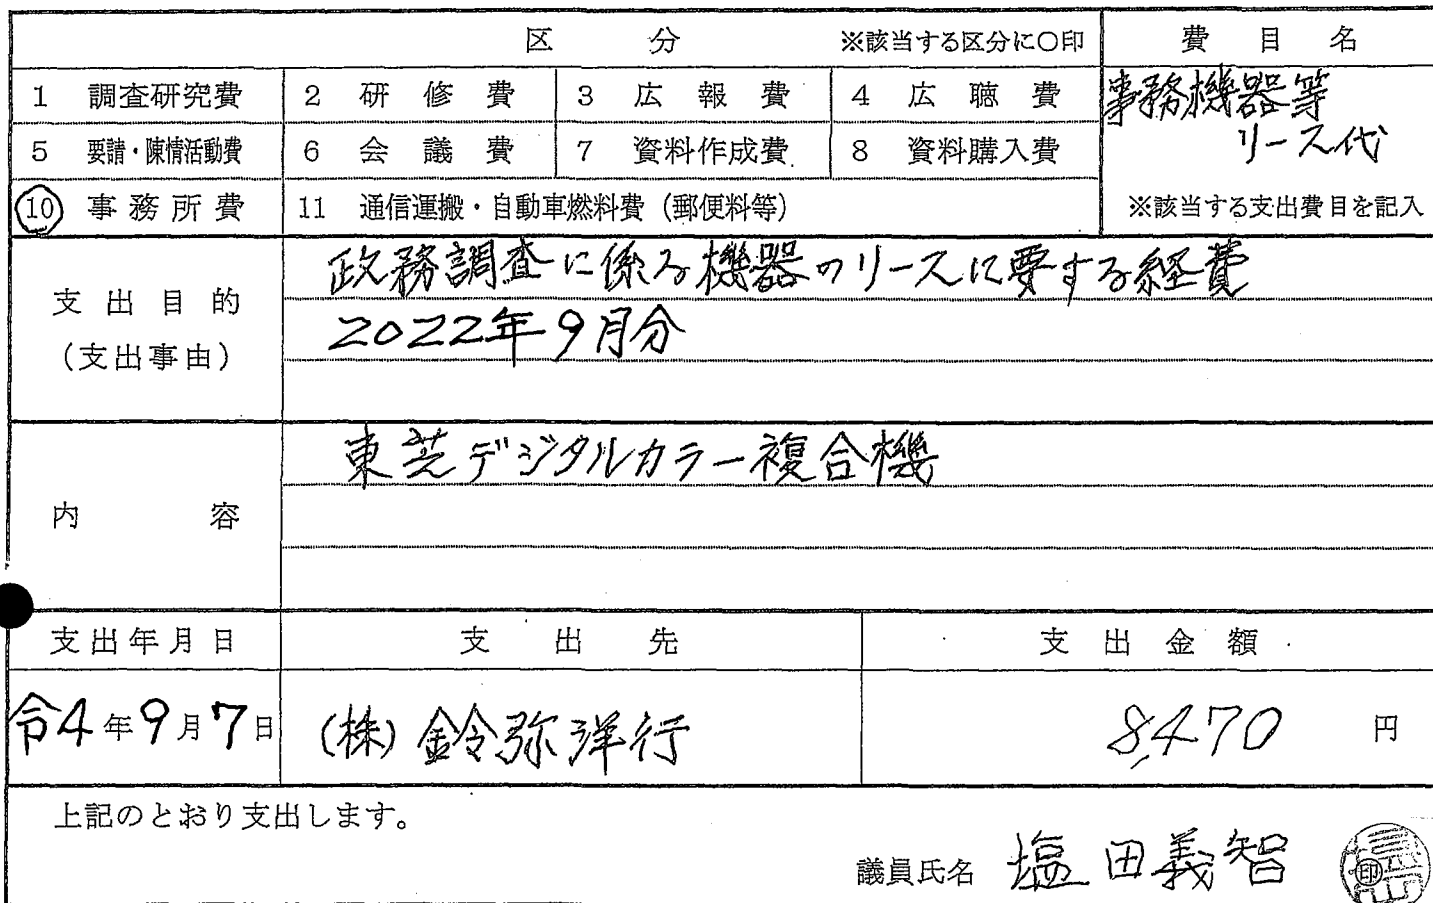 区 分 ※該当する区分に○印 費 目 名
1 調査研究費 2 研 修 費 3 広 報 費 4 広 聴 費 事務機器等
5 要請・陳情活動費 6 会 議 費 7 資料作成費 8 資料購入費 リース代
10 事務所費 11 通信運搬・自動車燃料費（郵便料等） ※該当する支出費目を記入
支出目的 政務調査に係る機器のリースに要する経費
（支出事由） 2022年9月分
東芝デジタルカラー複合機
内 容
支出年月日 支 出 先 支 出 金 額
令4年9月7日 (株)鈴弥洋行 8,470 円
上記のとおり支出します。
議員氏名 塩田義智 印